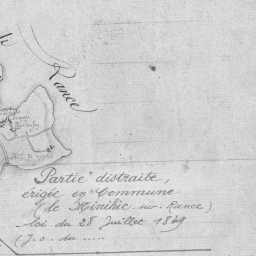 Rance
Partie distraite,
érigée en Commune
(le Minihic sur-Rance)
Loi du 28 Juillet 1849
(J.O. du .....